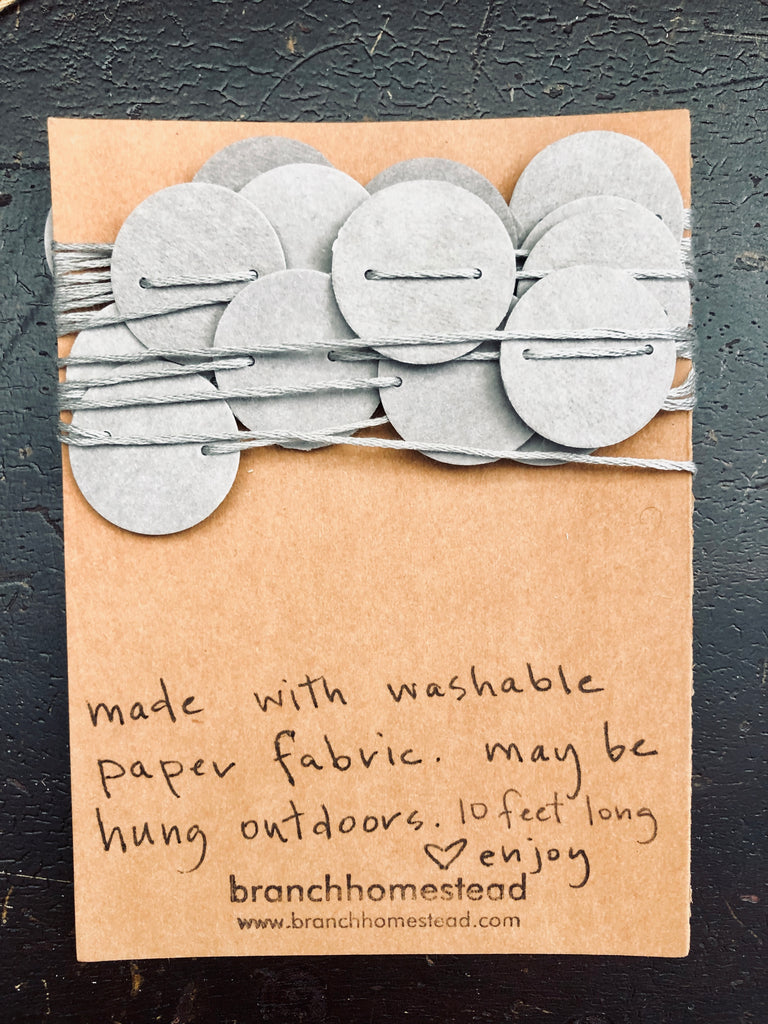 made with washable
paper fabric. may be
hung outdoors. 10 feet long
♡ enjoy
branchhomestead
www.branchhomestead.com